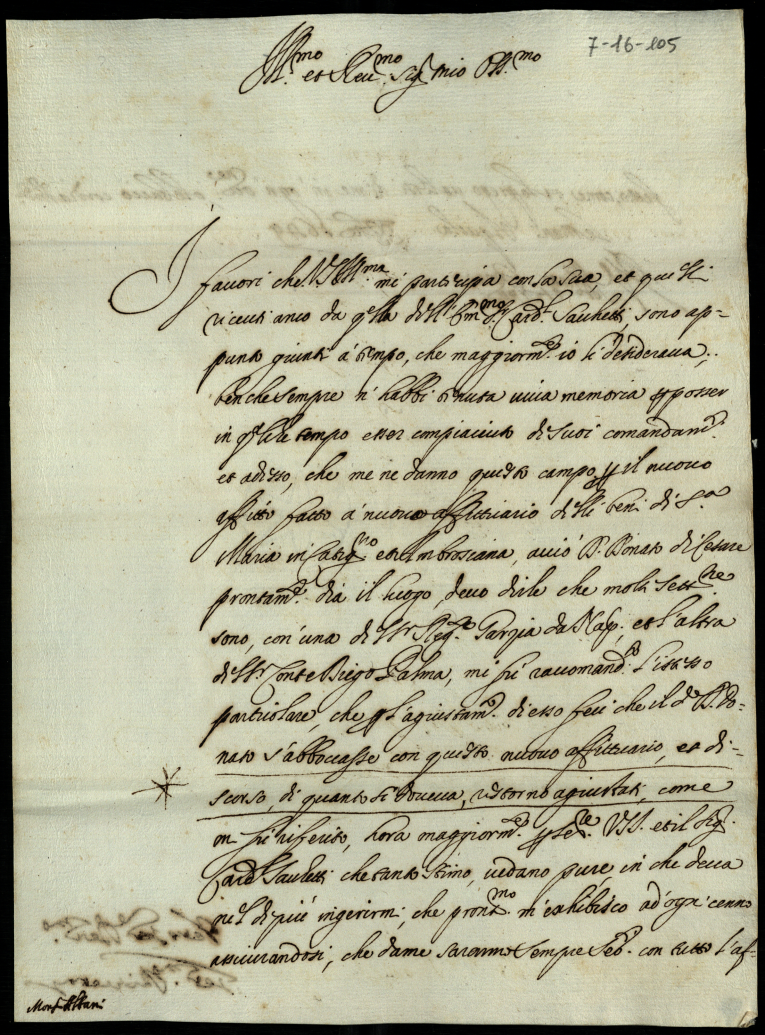 7-16-105
Ill.mo et Reu.mo Sig.r mio Oss.mo
I fauori che V.S. Ill.ma mi partecipa con la sua, et questi
riceuti anco da q.lla dell' Em.mo S.r Card.l Sachetti, sono ap=
punto giunti à tempo, che maggiorm.te io li desideraua,
ben che sempre n' habbi tenuta uiua memoria p. posser
in q.lche tempo esser compiaciuto di suoi comandam.ti
et adesso, che me ne danno questo campo p. il nuouo
affitto fatto à nuouo affittuario delli beni di S.ta
Maria in et Ambrosiana, acciò D. Donato di Cesare
prontam.te dia il luogo, deuo dirle che molti sett.ne
sono, con una del S.r Reg.te Garzia da Nap. et l'altra
del S.r Conte Diego Palma, mi fù raccomand.to l'istesso
particolare, che p. l'agiustam.to di esso feci che il d.to D. Do=
nato s'abboccasse con questo nuouo affittuario, et di=
scorso, di quanto si doueua, restorno agiustati, come
mi fù riferito, hora maggiorm.te p. ser.re V.S. Ill. et il Sig.r
Card.l Sachetti che tanto stimo, uedano pure in che deua
nel di più ingerirmi, che pront.mo m'exhibisco ad ogni cenno
assicurandosi, che da me saranno sempre ser. con tutto l'af=
Mons.r Albani